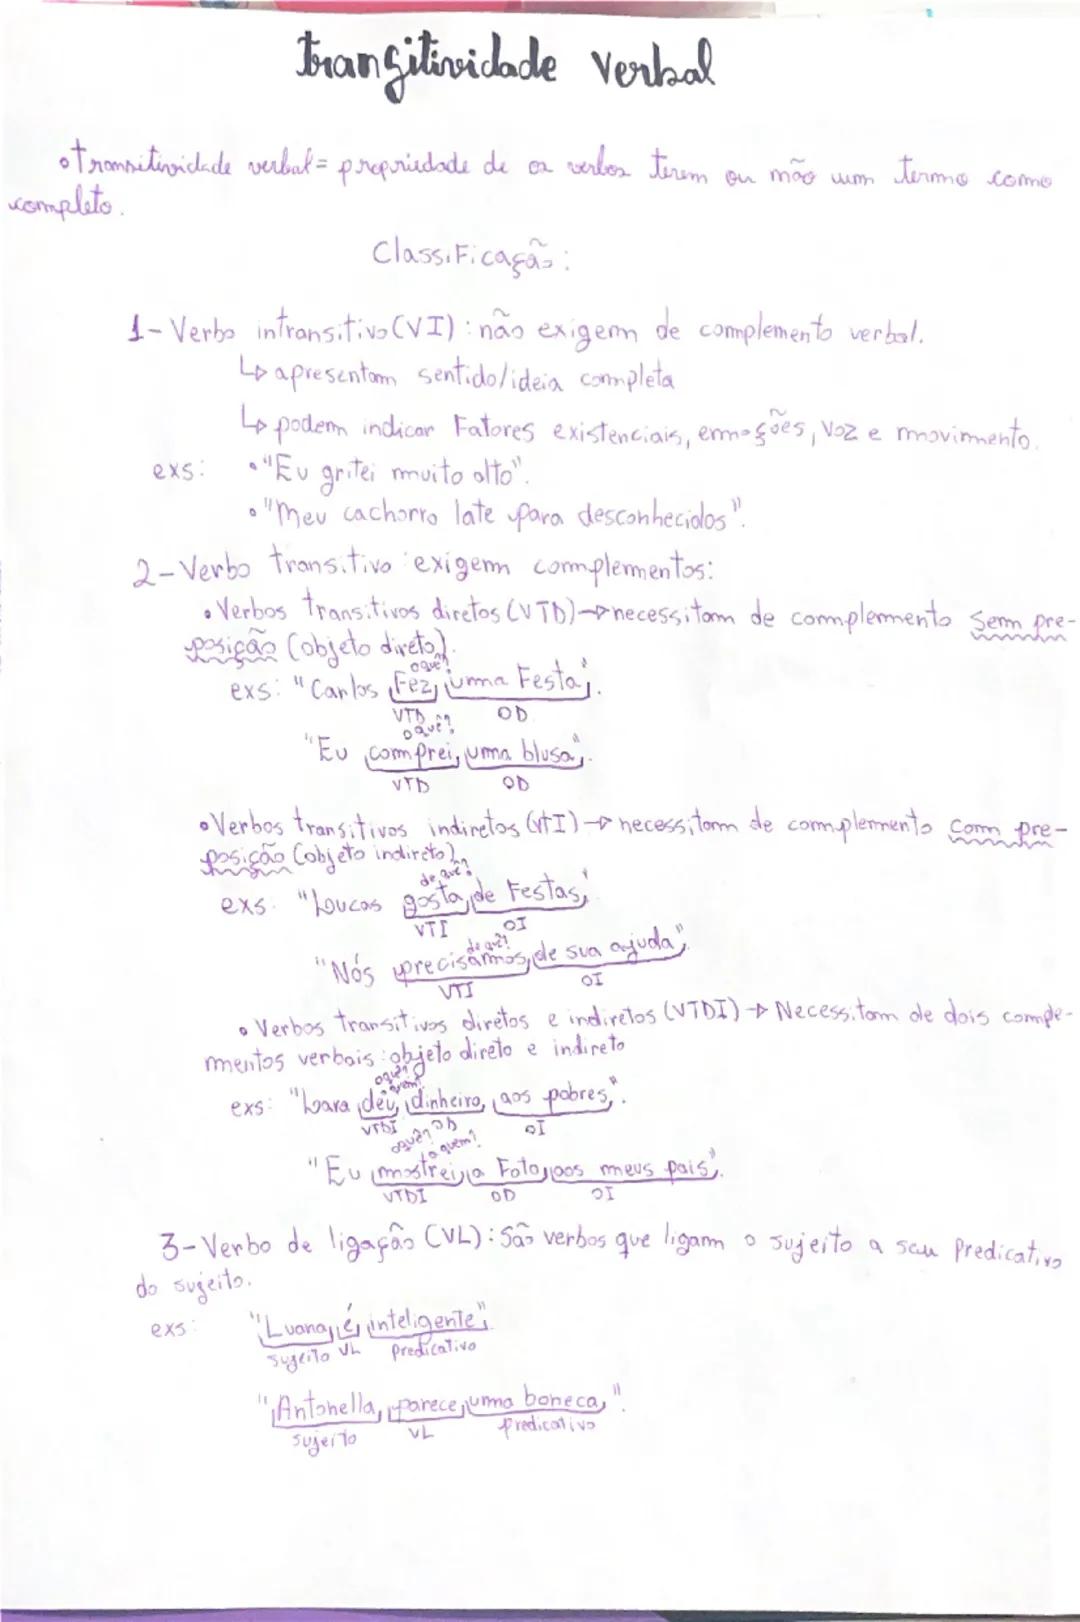 transitividade verbal
•transitividade verbal= propriedade de os verbos terem ou não um termo como
completo.
Classificação:
1-Verbo intransitivo(VI): não exigem de complemento verbal.
↳apresentam sentido/ideia completa
↳podem indicar Fatores existenciais, emoções, voz e movimento.
exs: •"Eu gritei muito alto".
•"Meu cachorro late para desconhecidos".
2-Verbo transitivo: exigem complementos:
•Verbos transitivos diretos (VTD)→necessitam de complemento sem pre-
posição (objeto direto).
oquê?
exs: "Carlos Fez uma Festa".
VTD OD
oquê?
"Eu comprei uma blusa".
VTD OD
•Verbos transitivos indiretos (VTI)→necessitam de complemento com pre-
posição (objeto indireto)
de quê?
exs: "Lucas gosta de Festas"
VTI OI
de quê?
"Nós precisamos de sua ajuda".
VTI OI
•Verbos transitivos diretos e indiretos (VTDI)→Necessitam de dois comple-
mentos verbais: objeto direto e indireto
oquê?
quem?
exs: "Lara deu dinheiro aos pobres".
VTDI OD OI
oquê?
a quem?
"Eu mostrei a Foto aos meus pais".
VTDI OD OI
3-Verbo de ligação (VL): São verbos que ligam o sujeito a seu Predicativo
do sujeito.
exs: "Luana é inteligente".
sujeito VL predicativo
"Antonella parece uma boneca".
sujeito VL predicativo